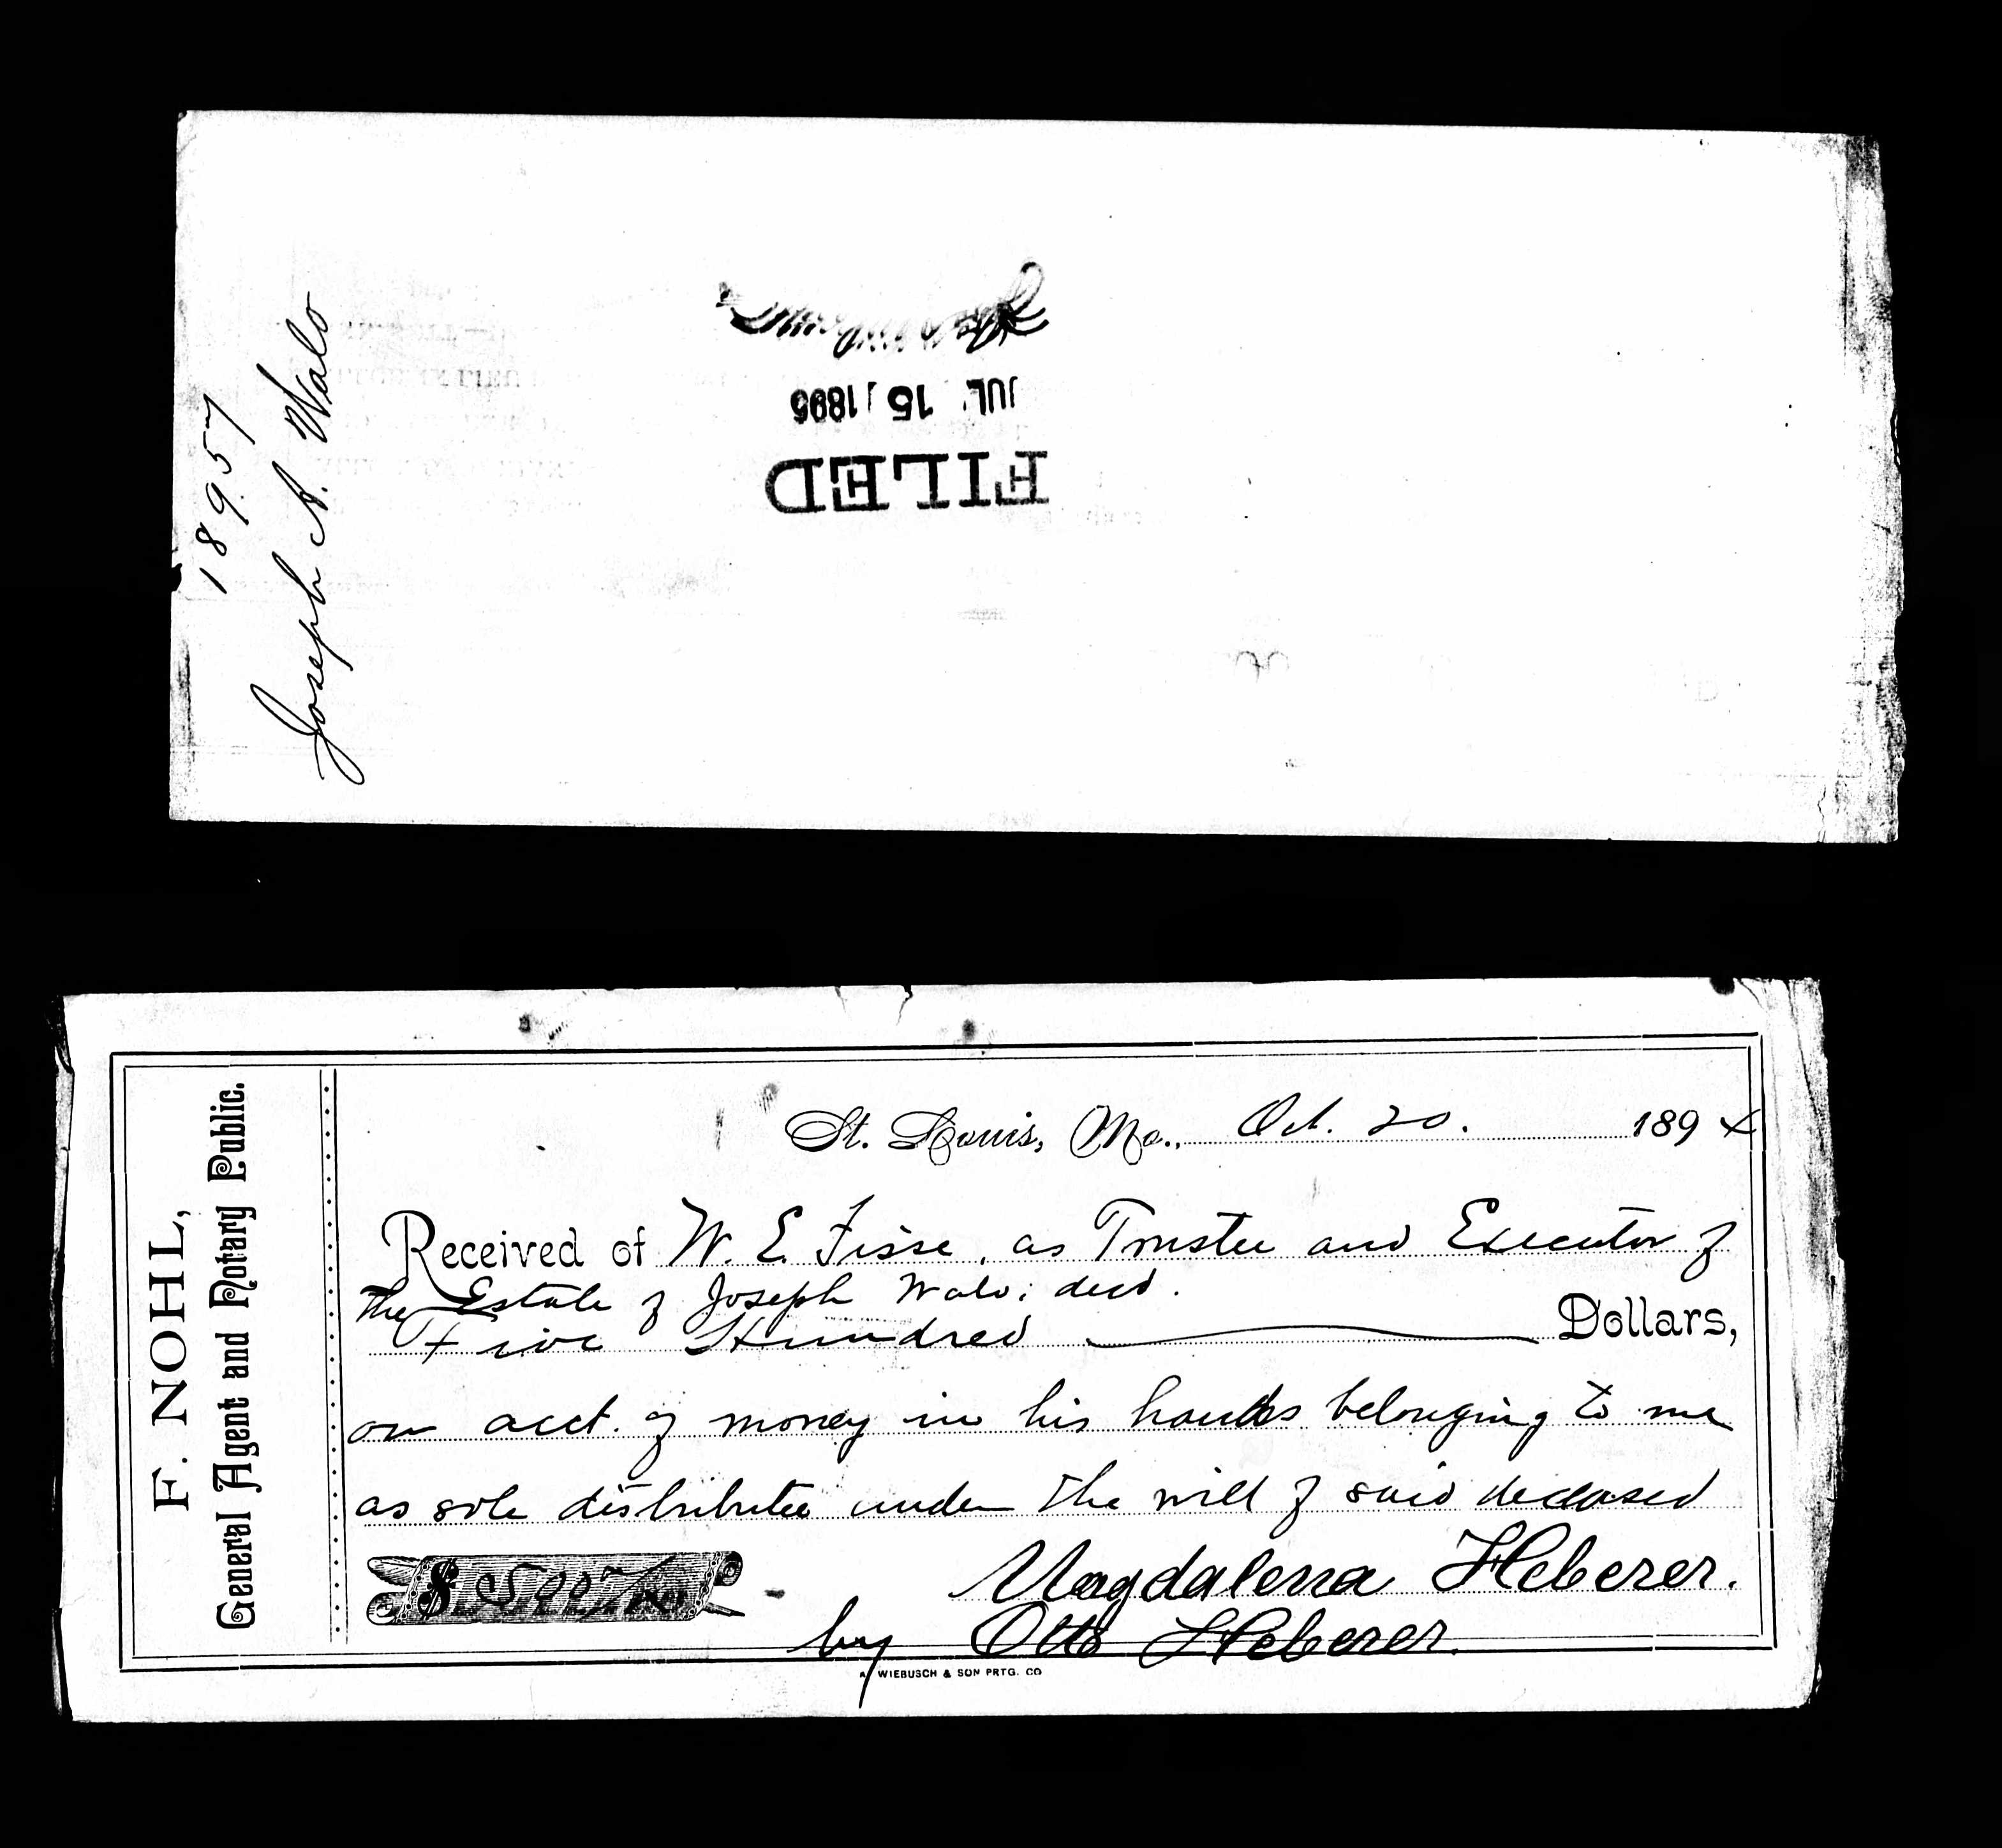 18957
Joseph A. Walo
FILED
JUL 15 1895
F. NOHL,
General Agent and Notary Public.
St. Louis, Mo., Oct. 20. 1894
Received of W. E. Fisse, as Trustee and Executor of
the Estate of Joseph Walo; decd.
Five Hundred Dollars,
on acct. of money in his hands belonging to me
as sole distributee under the will of said deceased
$ 500
Magdalena Heberer.
by Otto Heberer.
WIEBUSCH & SON PRTG. CO